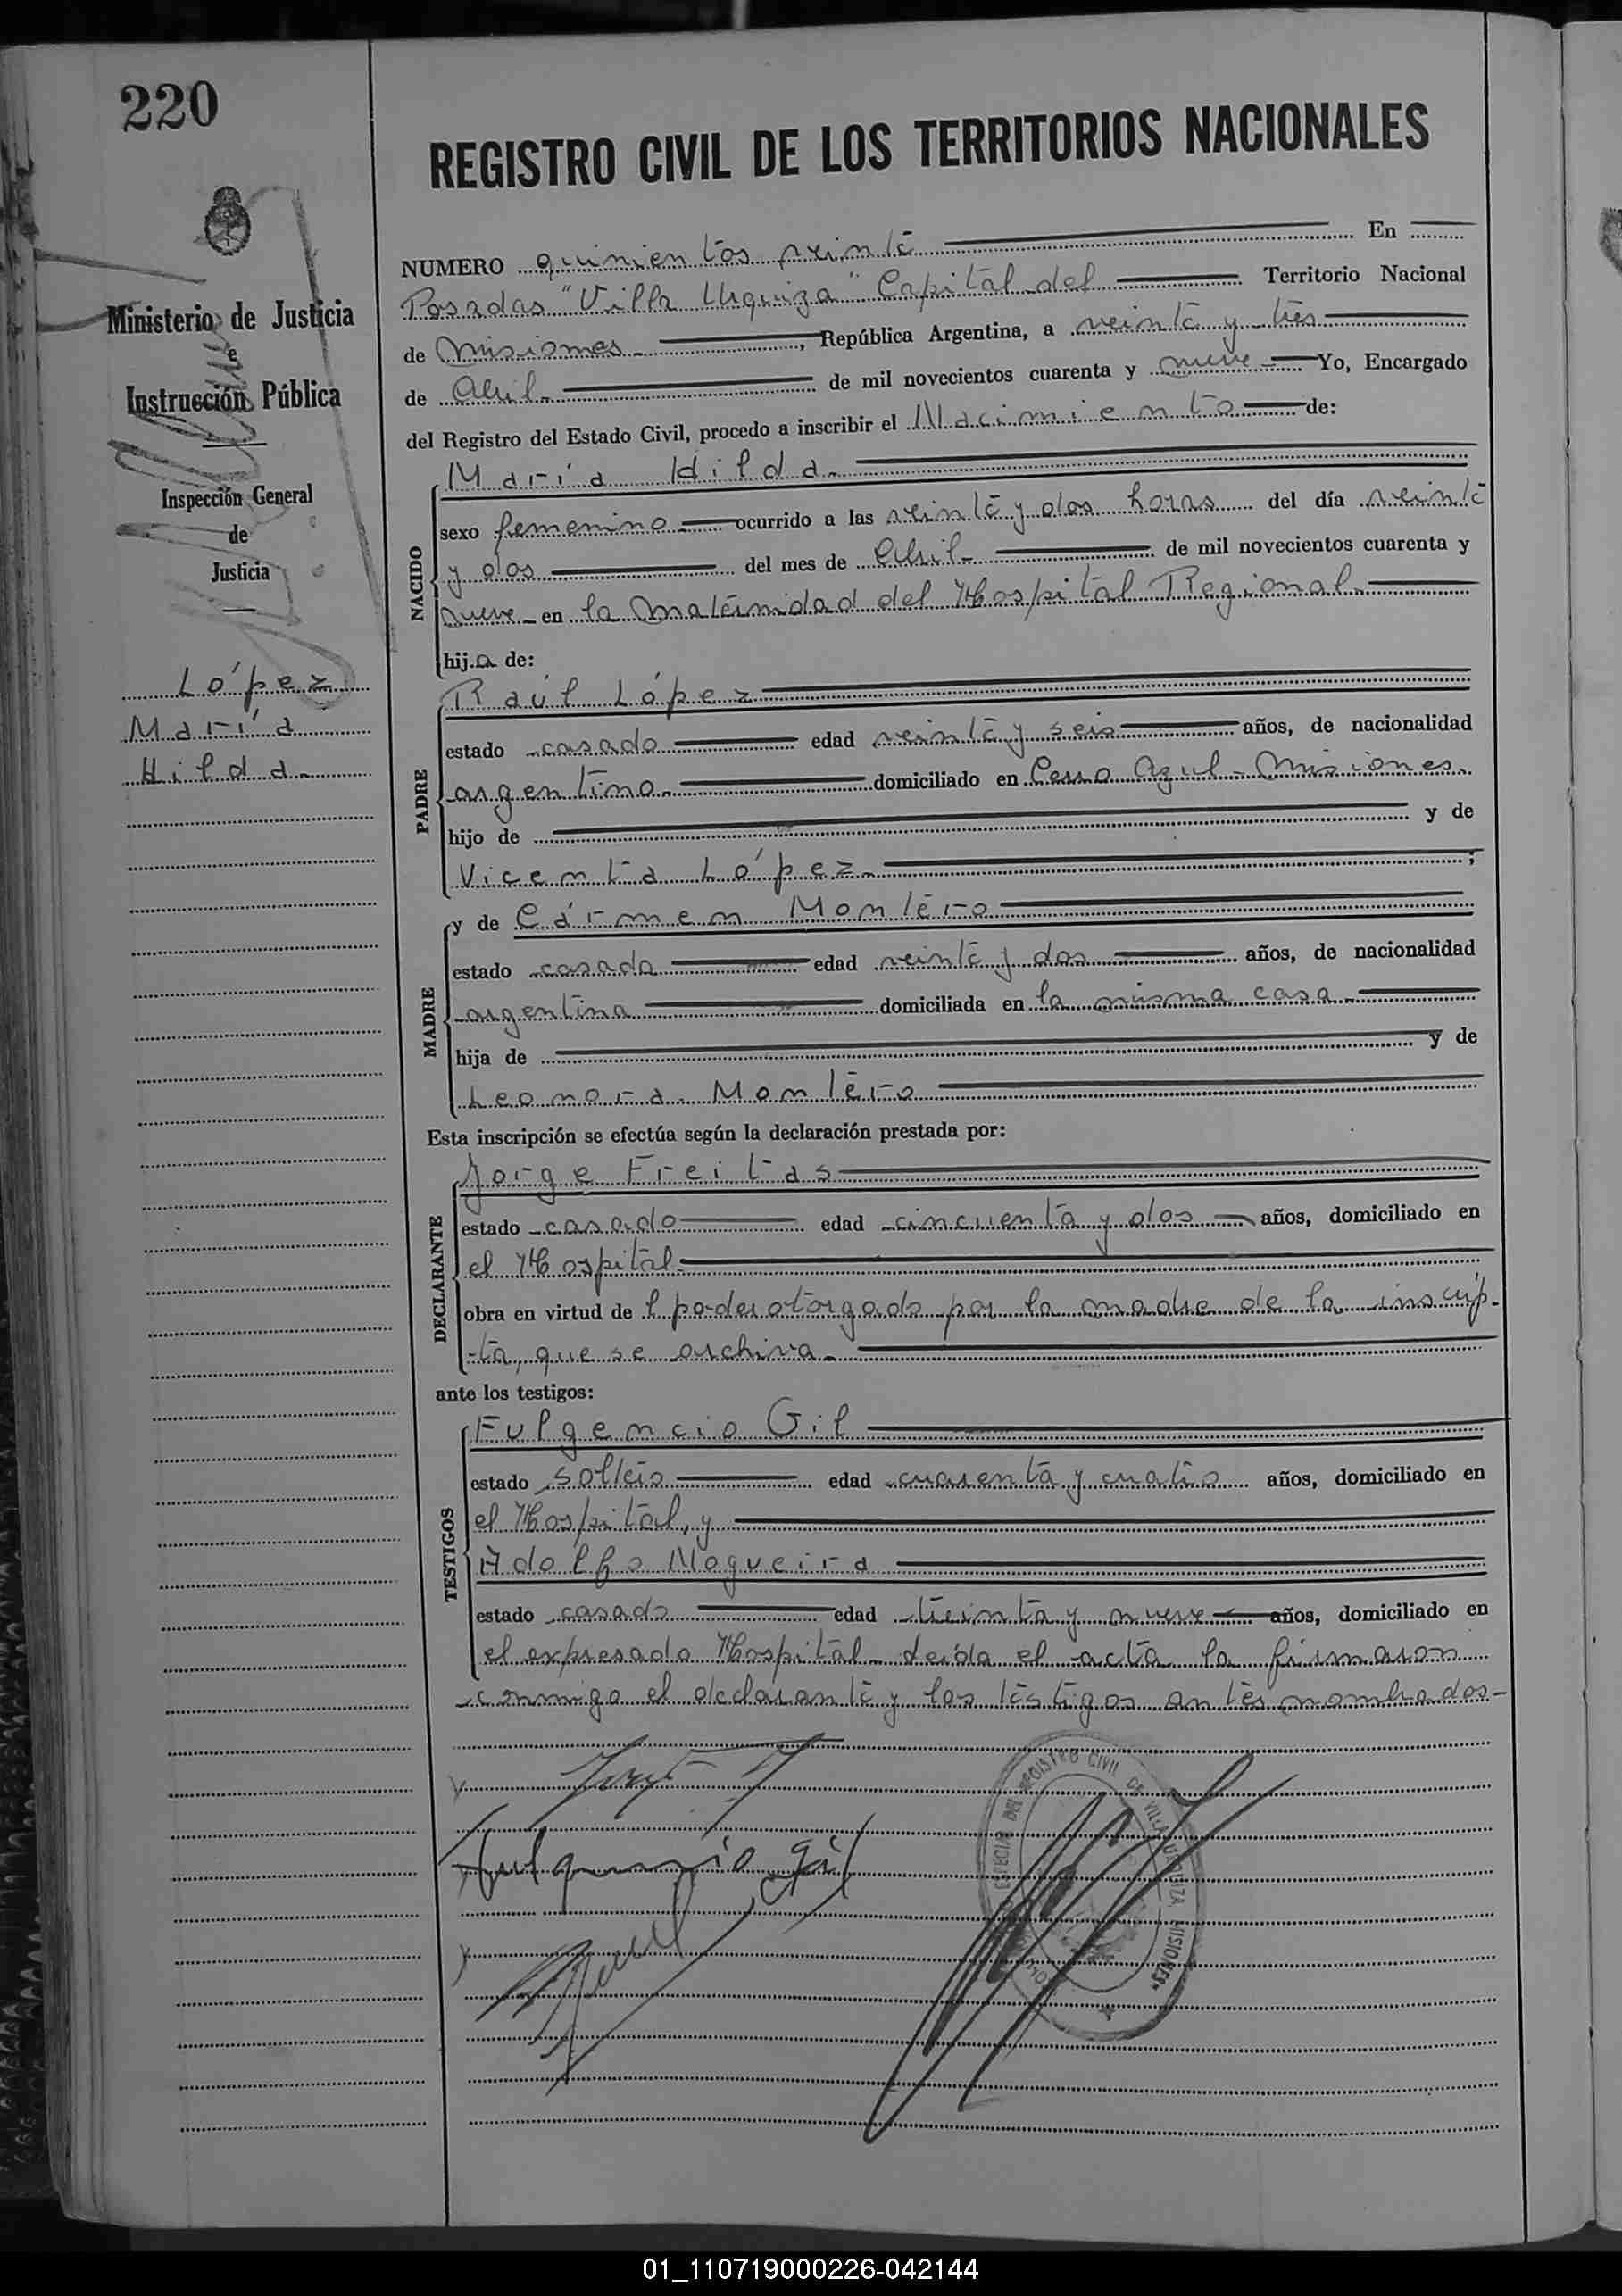 220
REGISTRO CIVIL DE LOS TERRITORIOS NACIONALES
Ministerio de Justicia
e
Instrucción Pública
Inspección General
de
Justicia
López
María
Hilda.
NUMERO quinientos veinte En
Posadas "Villa Urquiza" Capital del Territorio Nacional
de Misiones , República Argentina, a veinte y tres
de Abril de mil novecientos cuarenta y nueve Yo, Encargado
del Registro del Estado Civil, procedo a inscribir el Nacimiento de:
NACIDO
María Hilda.
sexo femenino ocurrido a las veinte y dos horas del día veinte
y dos del mes de Abril de mil novecientos cuarenta y
nueve en la Maternidad del Hospital Regional.
hija de:
PADRE
Raúl López
estado casado edad veinte y seis años, de nacionalidad
argentino. domiciliado en Cerro Azul - Misiones.
hijo de y de
Vicenta López. ;
MADRE
y de Cármen Montero
estado casada edad veinte y dos años, de nacionalidad
argentina domiciliada en la misma casa
hija de y de
Leonora Montero
Esta inscripción se efectúa según la declaración prestada por:
DECLARANTE
Jorge Freitas
estado casado edad cincuenta y dos años, domiciliado en
el Hospital.
obra en virtud de l poder otorgado por la madre de la inscrip-
-ta, que se archiva.
ante los testigos:
TESTIGOS
Fulgencio Gil
estado soltero edad cuarenta y cuatro años, domiciliado en
el Hospital, y
Adolfo Nogueira
estado casado edad treinta y nueve años, domiciliado en
el expresado Hospital. Leída el acta la firmaron
conmigo el declarante y los testigos antes nombrados-
Fulgencio Gil
DEL REGISTRO CIVIL DE VILLA URQUIZA MISIONES
01_110719000226-042144